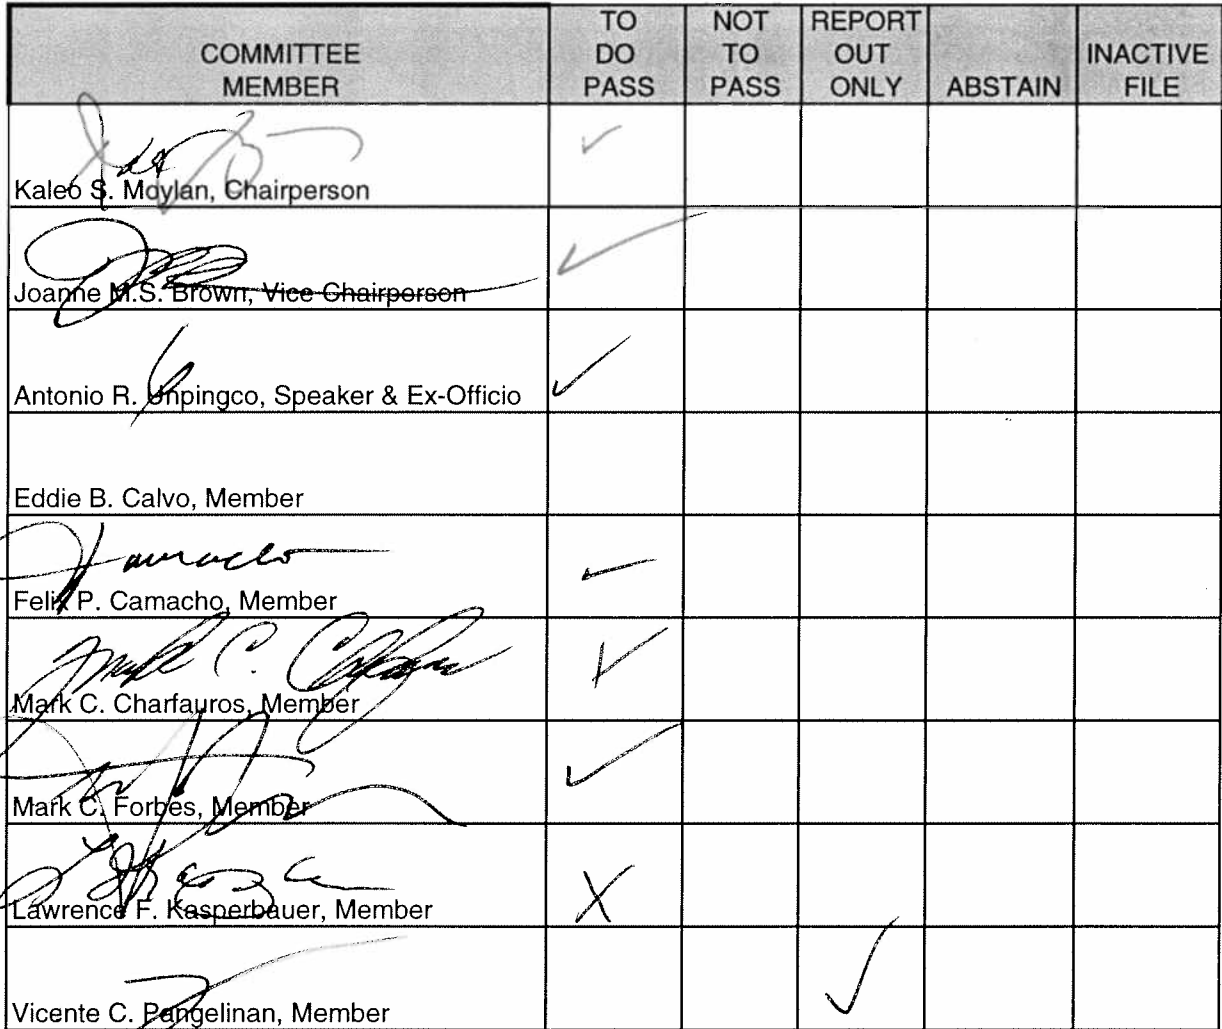 COMMITTEE MEMBER
TO DO PASS
NOT TO PASS
REPORT OUT ONLY
ABSTAIN
INACTIVE FILE
Kaleo S. Moylan, Chairperson
Joanne M.S. Brown, Vice Chairperson
Antonio R. Unpingco, Speaker & Ex-Officio
Eddie B. Calvo, Member
Felix P. Camacho, Member
Mark C. Charfauros, Member
Mark C. Forbes, Member
Lawrence F. Kasperbauer, Member
Vicente C. Pangelinan, Member